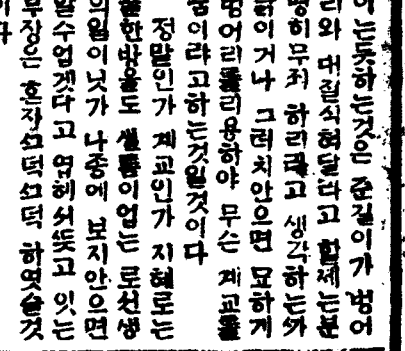 이는듯하는것은 준길이가 벙어
리와 대질식혀달라고 할제는분
명히무죄 하리라고 생각하는外
이거나 그러치안으면 묘하게
벙어리를리용하야 무슨 계교를
이라고하는것일것이다
정말인가 계교인가 지혜로는
한방울도 샐틈이업는 로선생
의일이닛가 나중에 보지안으면
알수업겟다고 엽헤서듯고 잇는
부장은 혼자수덕수덕 하엿슬것
이다